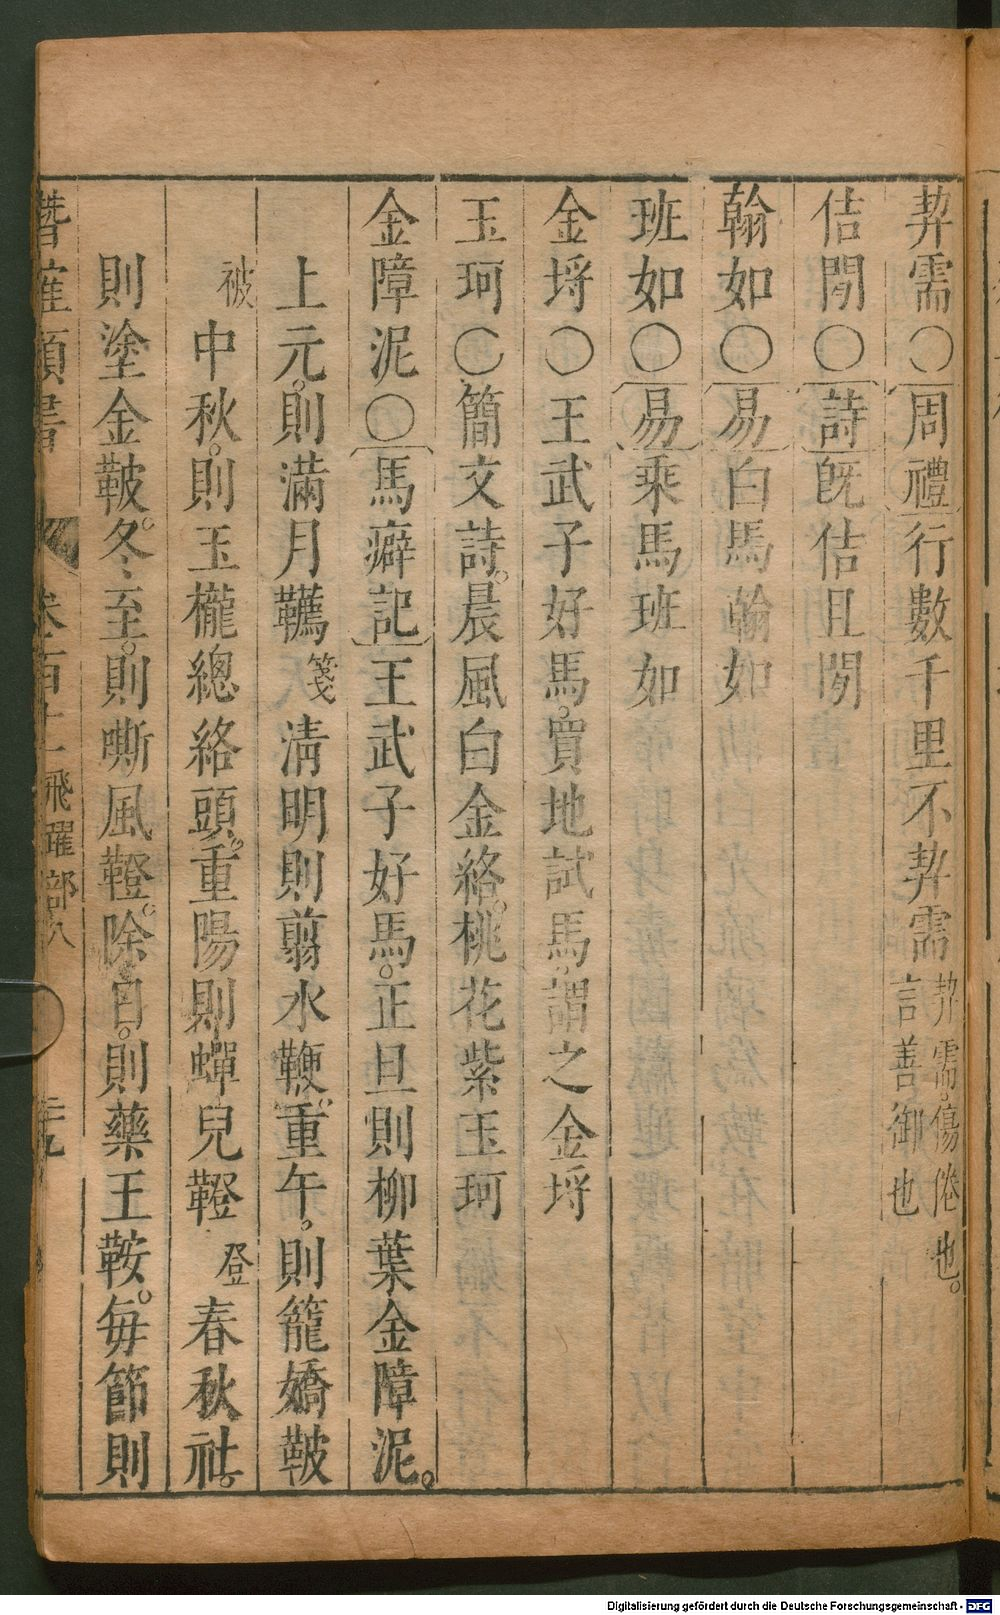 契需〇周禮行數千里不契需契需傷倦也言善御也
佶閑〇詩旣佶且閑
翰如〇易白馬翰如
班如〇易乘馬班如
金埒〇王武子好馬買地試馬謂之金埒
玉珂〇簡文詩晨風白金絡桃花紫玉珂
金障泥〇馬癖記王武子好馬正旦則柳葉金障泥
上元則滿月韉箋淸明則翦水鞭重午則籠嬌鞁
被中秋則玉櫳總絡頭重陽則蟬兒鞳登春秋社
則塗金鞁冬至則嘶風鞳除日則藥王鞍每節則
類書 卷百十一飛躍部八 三九
Digitalisierung gefördert durch die Deutsche Forschungsgemeinschaft - DFG